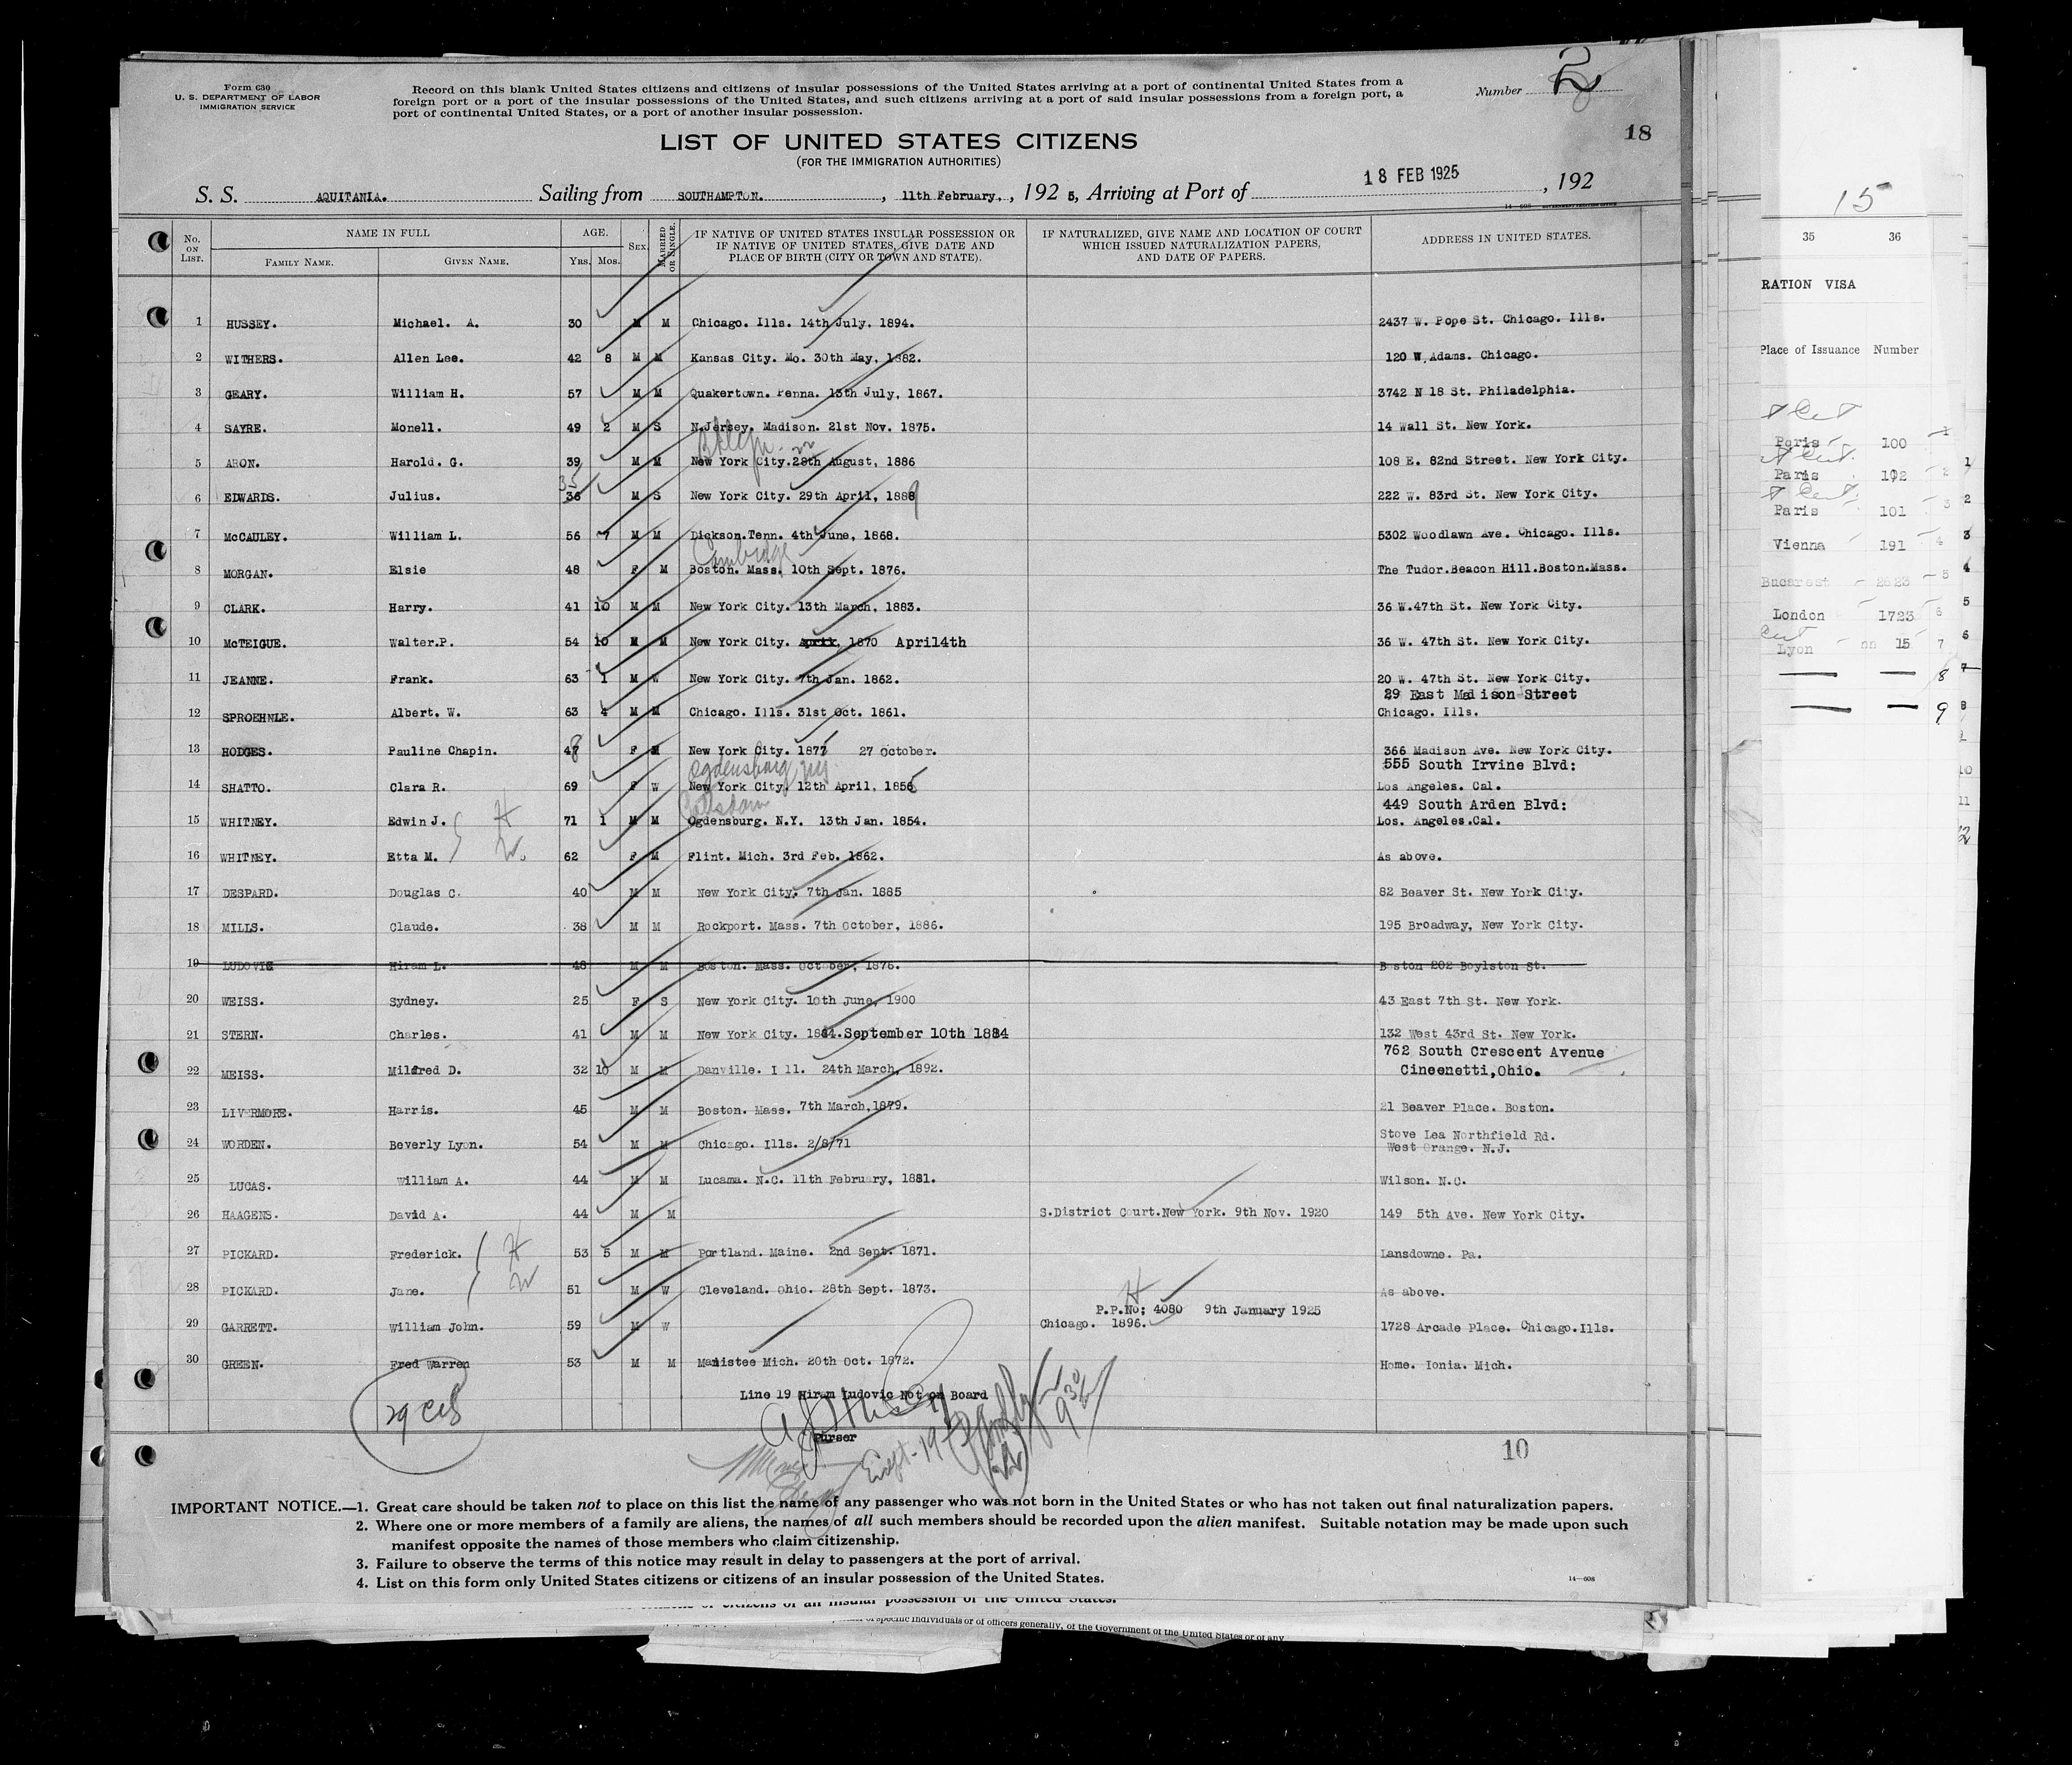 Form 630
U. S. DEPARTMENT OF LABOR
IMMIGRATION SERVICE
Record on this blank United States citizens and citizens of insular possessions of the United States arriving at a port of continental United States from a
foreign port or a port of the insular possessions of the United States, and such citizens arriving at a port of said insular possessions from a foreign port, a
port of continental United States, or a port of another insular possession.
Number 2
18
LIST OF UNITED STATES CITIZENS
(FOR THE IMMIGRATION AUTHORITIES)
S. S. AQUITANIA. Sailing from SOUTHAMPTON. , 11th February, , 192 5, Arriving at Port of 18 FEB 1925 , 192
No. ON LIST. NAME IN FULL AGE. SEX. MARRIED OR SINGLE. IF NATIVE OF UNITED STATES INSULAR POSSESSION OR IF NATIVE OF UNITED STATES, GIVE DATE AND PLACE OF BIRTH (CITY OR TOWN AND STATE). IF NATURALIZED, GIVE NAME AND LOCATION OF COURT WHICH ISSUED NATURALIZATION PAPERS, AND DATE OF PAPERS. ADDRESS IN UNITED STATES.
FAMILY NAME. GIVEN NAME. Yrs. Mos.
1 HUSSEY. Michael. A. 30 M M Chicago. Ills. 14th July, 1894. 2437 W. Pope St. Chicago. Ills.
2 WITHERS. Allen Lee. 42 8 M M Kansas City. Mo. 30th May, 1882. 120 W. Adams. Chicago.
3 GEARY. William H. 57 M M Quakertown. Penna. 13th July, 1867. 3742 N 18 St. Philadelphia.
4 SAYRE. Monell. 49 2 M S N.Jersey. Madison. 21st Nov. 1875. 14 Wall St. New York.
5 ARON. Harold. G. 39 M M New York City. 28th August, 1886 108 E. 82nd Street. New York City.
35
6 EDWARDS. Julius. 36 M S New York City. 29th April, 1888 9 222 W. 83rd St. New York City.
7 McCAULEY. William L. 56 7 M M Dickson.Tenn. 4th June, 1868. 5302 Woodlawn Ave. Chicago. Ills.
Cambridge
8 MORGAN. Elsie 48 F M Boston. Mass. 10th Sept. 1876. The Tudor.Beacon Hill.Boston.Mass.
9 CLARK. Harry. 41 10 M M New York City. 13th March, 1883. 36 W.47th St. New York City.
10 McTEIGUE. Walter.P. 54 10 M M New York City. 1870 April4th 36 W. 47th St. New York City.
11 JEANNE. Frank. 63 1 M W New York City. 7th Jan. 1862. 20 W. 47th St. New York City.
29 East Madison Street
12 SPROEHNLE. Albert. W. 63 4 M M Chicago. Ills. 31st Oct. 1861. Chicago. Ills.
13 HODGES. Pauline Chapin. 48 F M New York City. 1877 27 October. 366 Madison Ave. New York City.
Ogdensburg NY. 555 South Irvine Blvd:
14 SHATTO. Clara R. 69 F W New York City. 12th April, 1855 Los Angeles. Cal.
449 South Arden Blvd:
15 WHITNEY. Edwin J. H 71 1 M M Ogdensburg. N.Y. 13th Jan. 1854. Los. Angeles.Cal.
16 WHITNEY. Etta M. W. 62 F M Flint. Mich. 3rd Feb. 1862. As above.
17 DESPARD. Douglas C. 40 M M New York City. 7th Jan. 1885 82 Beaver St. New York City.
18 MILLS. Claude. 38 M M Rockport. Mass. 7th October, 1886. 195 Broadway, New York City.
19 LUDOVIC Hiram L. 48 M M Boston. Mass. October, 1876. Boston 202 Boylston St.
20 WEISS. Sydney. 25 F S New York City. 10th June, 1900 43 East 7th St. New York.
21 STERN. Charles. 41 M M New York City. 1884.September 10th 1884 132 West 43rd St. New York.
762 South Crescent Avenue
22 MEISS. Mildred D. 32 10 M M Danville. I ll. 24th March, 1892. Cineenetti,Ohio.
23 LIVERMORE. Harris. 45 M M Boston. Mass. 7th March,1879. 21 Beaver Place. Boston.
24 WORDEN. Beverly Lyon. 54 M M Chicago. Ills. 2/8/71 Stove Lea Northfield Rd.
West Orange. N.J.
25 LUCAS. William A. 44 M M Lucama. N.C. 11th February, 1881. Wilson. N.C.
26 HAAGENS. David A. 44 M M S.District Court.New York. 9th Nov. 1920 149 5th Ave. New York City.
27 PICKARD. Frederick. H 53 5 M M Portland. Maine. 2nd Sept. 1871. Lansdowne. Pa.
28 PICKARD. Jane. W 51 M W Cleveland. Ohio. 28th Sept. 1873. As above.
P.P.No; 4080 9th January 1925
29 GARRETT. William John. 59 M W Chicago. 1896. 1728 Arcade Place. Chicago.Ills.
30 GREEN. Fred Warren 53 M M Manistee Mich. 20th Oct. 1872. Home. Ionia. Mich.
Line 19 Hiram Ludovic Not on Board
29
Purser
10
IMPORTANT NOTICE.—1. Great care should be taken not to place on this list the name of any passenger who was not born in the United States or who has not taken out final naturalization papers.
2. Where one or more members of a family are aliens, the names of all such members should be recorded upon the alien manifest. Suitable notation may be made upon such
manifest opposite the names of those members who claim citizenship.
3. Failure to observe the terms of this notice may result in delay to passengers at the port of arrival.
4. List on this form only United States citizens or citizens of an insular possession of the United States.
14—608
of specific individuals or of officers generally, of the Government of the United States or of any
15
35 36
RATION VISA
Place of Issuance Number
Paris 100
Paris 102
Paris 101
Vienna 191
Bucarest 2623
London 1723
Lyon 15